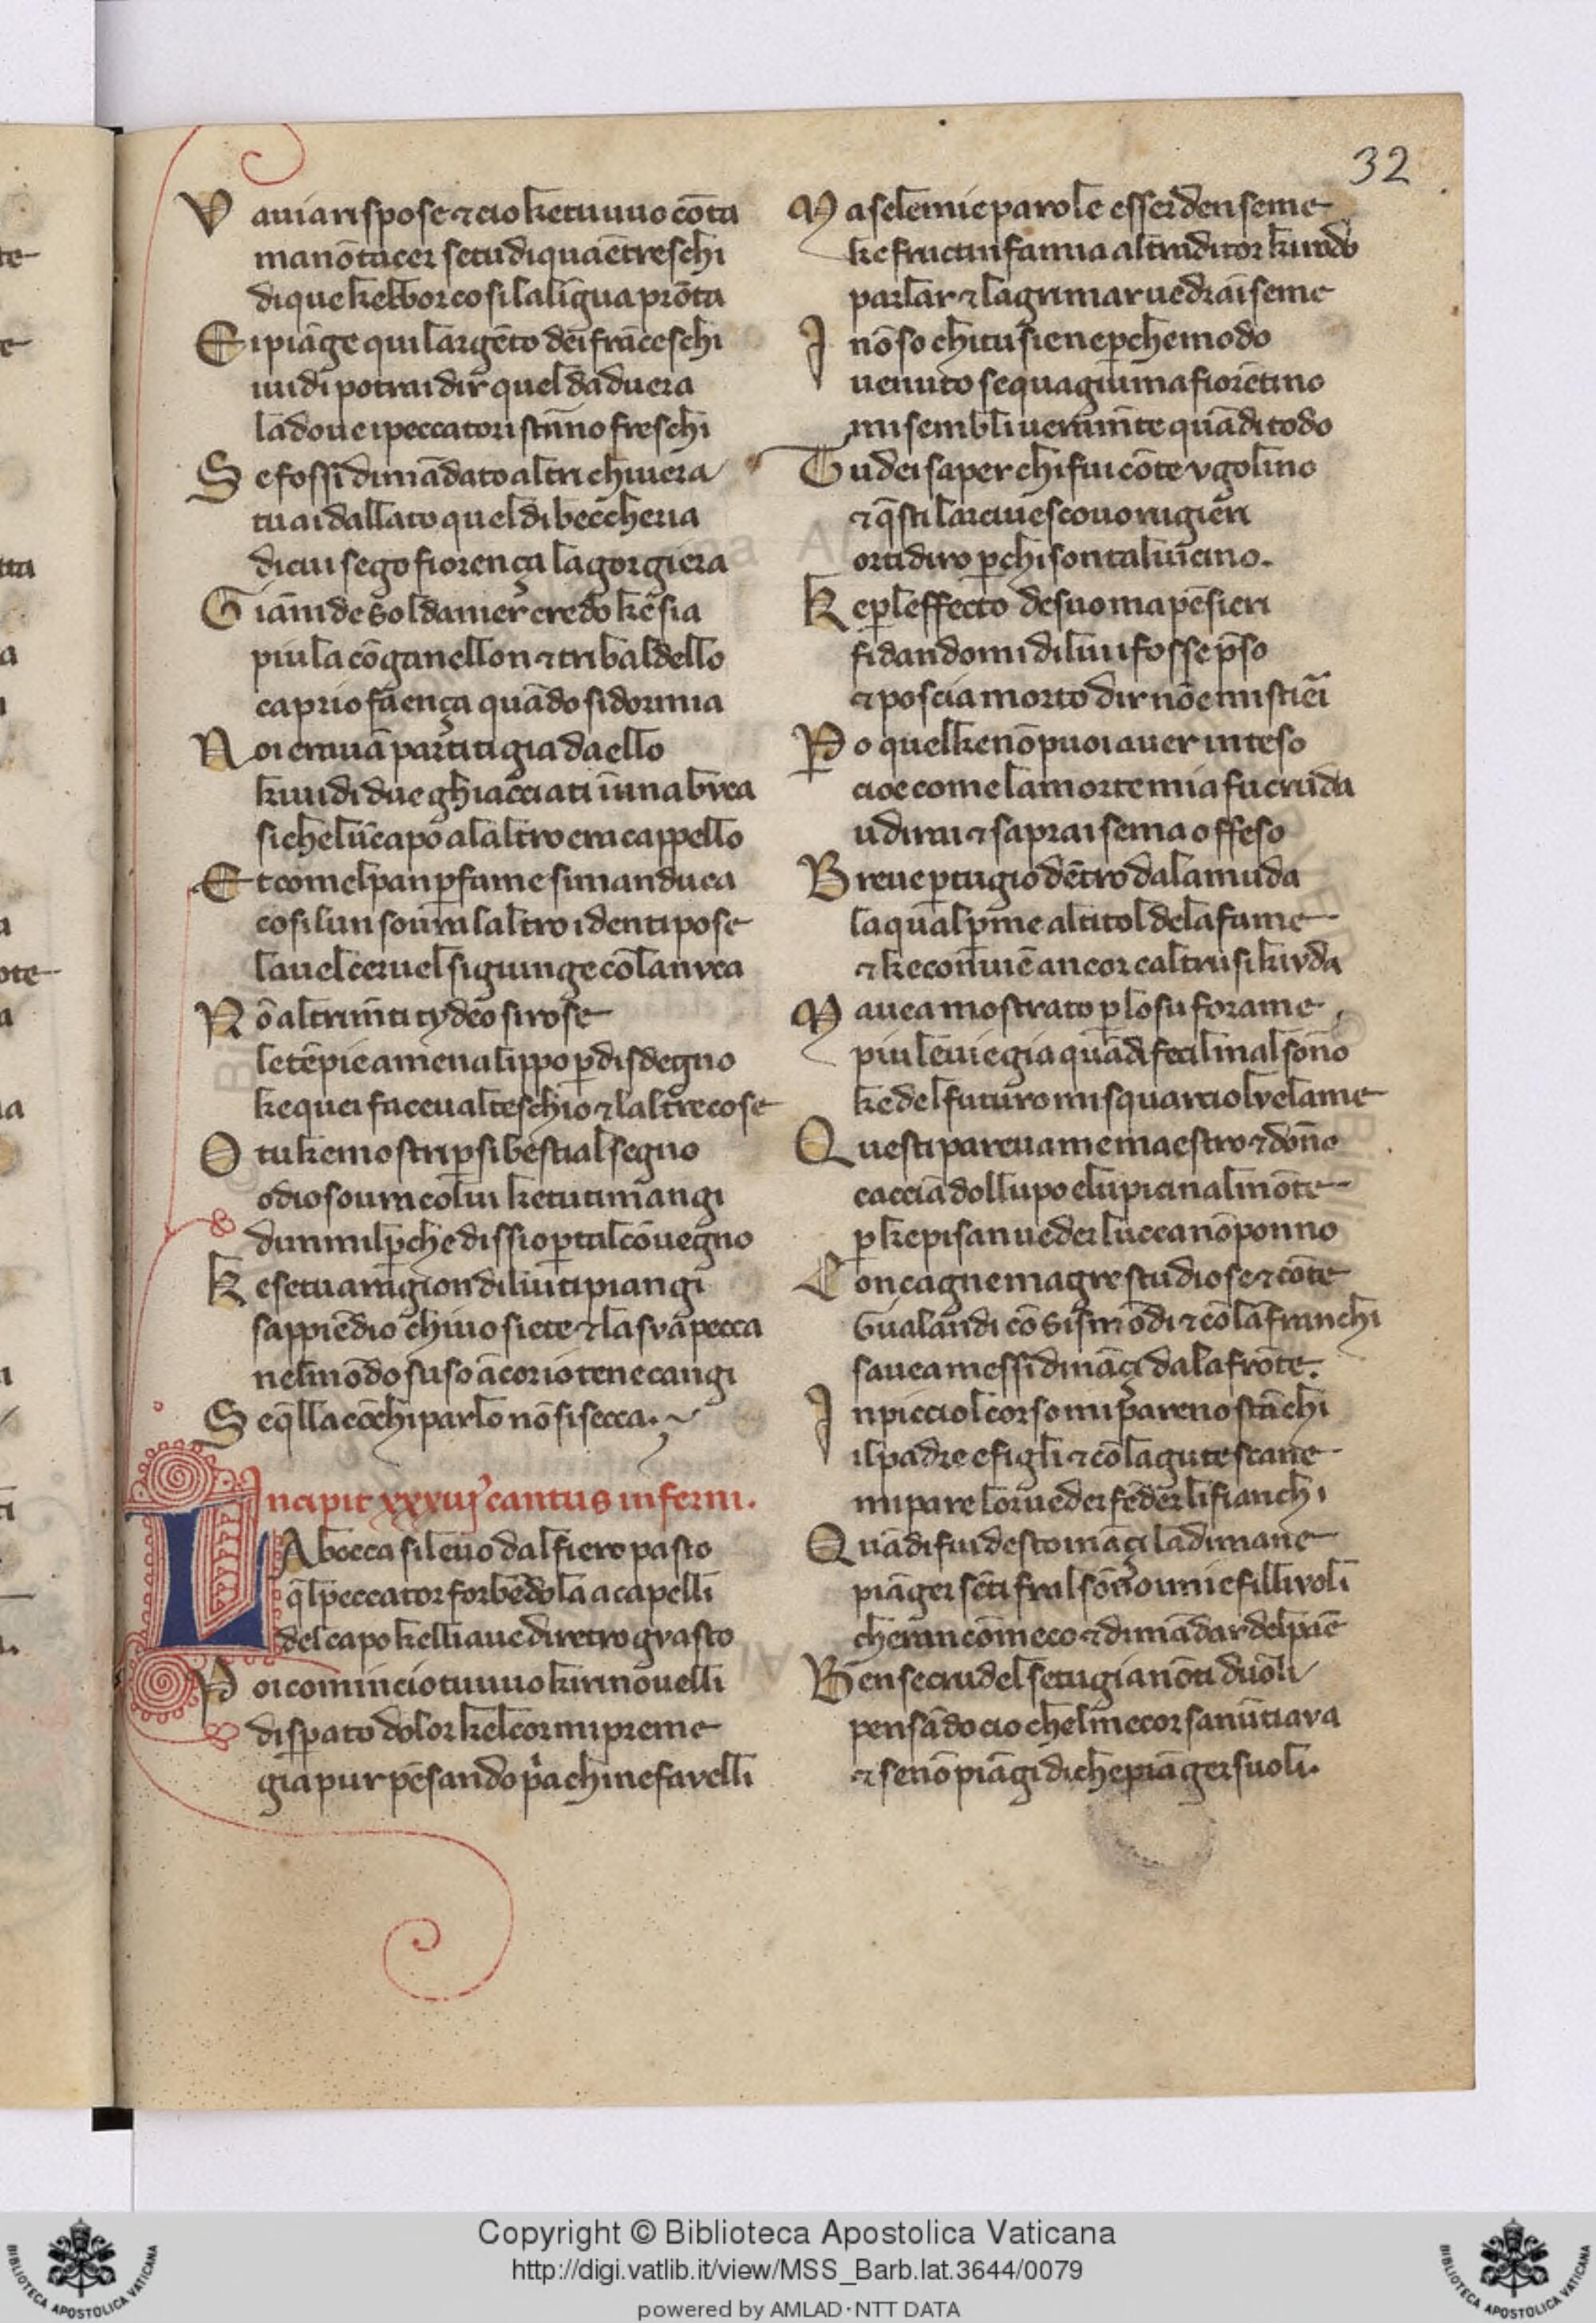 32
V a mi rispose ⁊ cio ke tu uuo cōta
ma nō tacer se tu di qua ētreschi
di que kebbor cosi la līgua prōta
E i piāge qui largēto dei frāceschi
uidi potrai dir quel da duera
la doue i peccatori stāno freschi
S e fossi dimādato altri chi uera
tu ai dallato quel di beccheria
di cui sego fiorença la gorgiera
G iāni de soldanier credo ke sia
piu la cō ganellon ⁊ tribaldello
caprio faença quādo si dormia
N oi erauā partiti gia da ello
kiuidi due ghiacciati in una bvca
si che lū capo a laltro era cappello
E t comel pan p fame si manduca
cosi lun soura laltro i denti pose
la uel ceruel sigiunge cō la nvca
N ō altrimti tydeo si rose
le tēpie a menalippo p disdegno
ke quei faceua il teschio ⁊ laltre cose
O tu ke mostri p si bestial segno
odio soura colui ke tu ti mangi
dimmil pche dissio p tal cōuegno
K e se tu a ragion di lui ti piangi
sappiēdio chi uo siete ⁊ la sva pecca
nel mōdo suso ācorio te ne cangi
S e qlla cō chi parlo nō si secca.
Incipit xxxiij cantus inferni.
LA bocca si leuo dal fiero pasto
ql peccator forbēdola a capelli
del capo kelli aue diretro gvasto
P oi comincio tu uuo kirinouelli
disperato dolor kel cor mi preme
gia pur pēsando pa chi ne favelli
M a se le mie parole esser den seme
ke fructi infamia al traditor kirodo
parlar ⁊ lagrimar uedrai seme
I nō so chi tu sie ne p che modo
uenuto se qua giu ma fiorētino
mi sembli ueramte quādi todo
T u dei saper chi fui cōte vgolino
⁊ qsti larciuescouo rugieri
or ti diro p chi son tal uicino.
K e pleffecto de suo ma pēsieri
fidandomi di lui i fosse pso
⁊ poscia morto dir nō e mistiēi
P o quel ke nō puoi auer inteso
cioe come la morte mia fu cruda
udirai ⁊ saprai se ma offeso
B reue ptugio dētro da la muda
la qual pme al titol de la fame
⁊ ke cōuiē ancor caltru si kivda
M auea mostrato p lo su forame
piu leuie gia quādi fecil mal sono
ke del futuro mi squarciol velame
Q uesti pareua me maestro ⁊ dōno
cacciādol lupo e lupicin al mōte
p ke pisan ueder lucca nō ponno
C on cagne magre studiose ⁊ cōte
Gualandi cō sismōdi ⁊ cō lāfranchi
sauea messi dināçi da la frōte.
I n picciol corso mi pareno stāchi
il padre e figli ⁊ cō lagute scane
mi pare lor ueder fēder li fianchi
Q uādi fui desto ināçi la dimane
piāger sēti fral sōno i mie filliuoli
cherān cō meco ⁊ dimādar del pāe
B en se crudel se tu gia nō ti duoli
pensādo cio chel mē cor sanūtiava
⁊ se nō piāgi di che piāger suoli.
Copyright © Biblioteca Apostolica Vaticana
http://digi.vatlib.it/view/MSS_Barb.lat.3644/0079
powered by AMLAD·NTT DATA
BIBLIOTECA APOSTOLICA VATICANA
BIBLIOTECA APOSTOLICA VATICANA